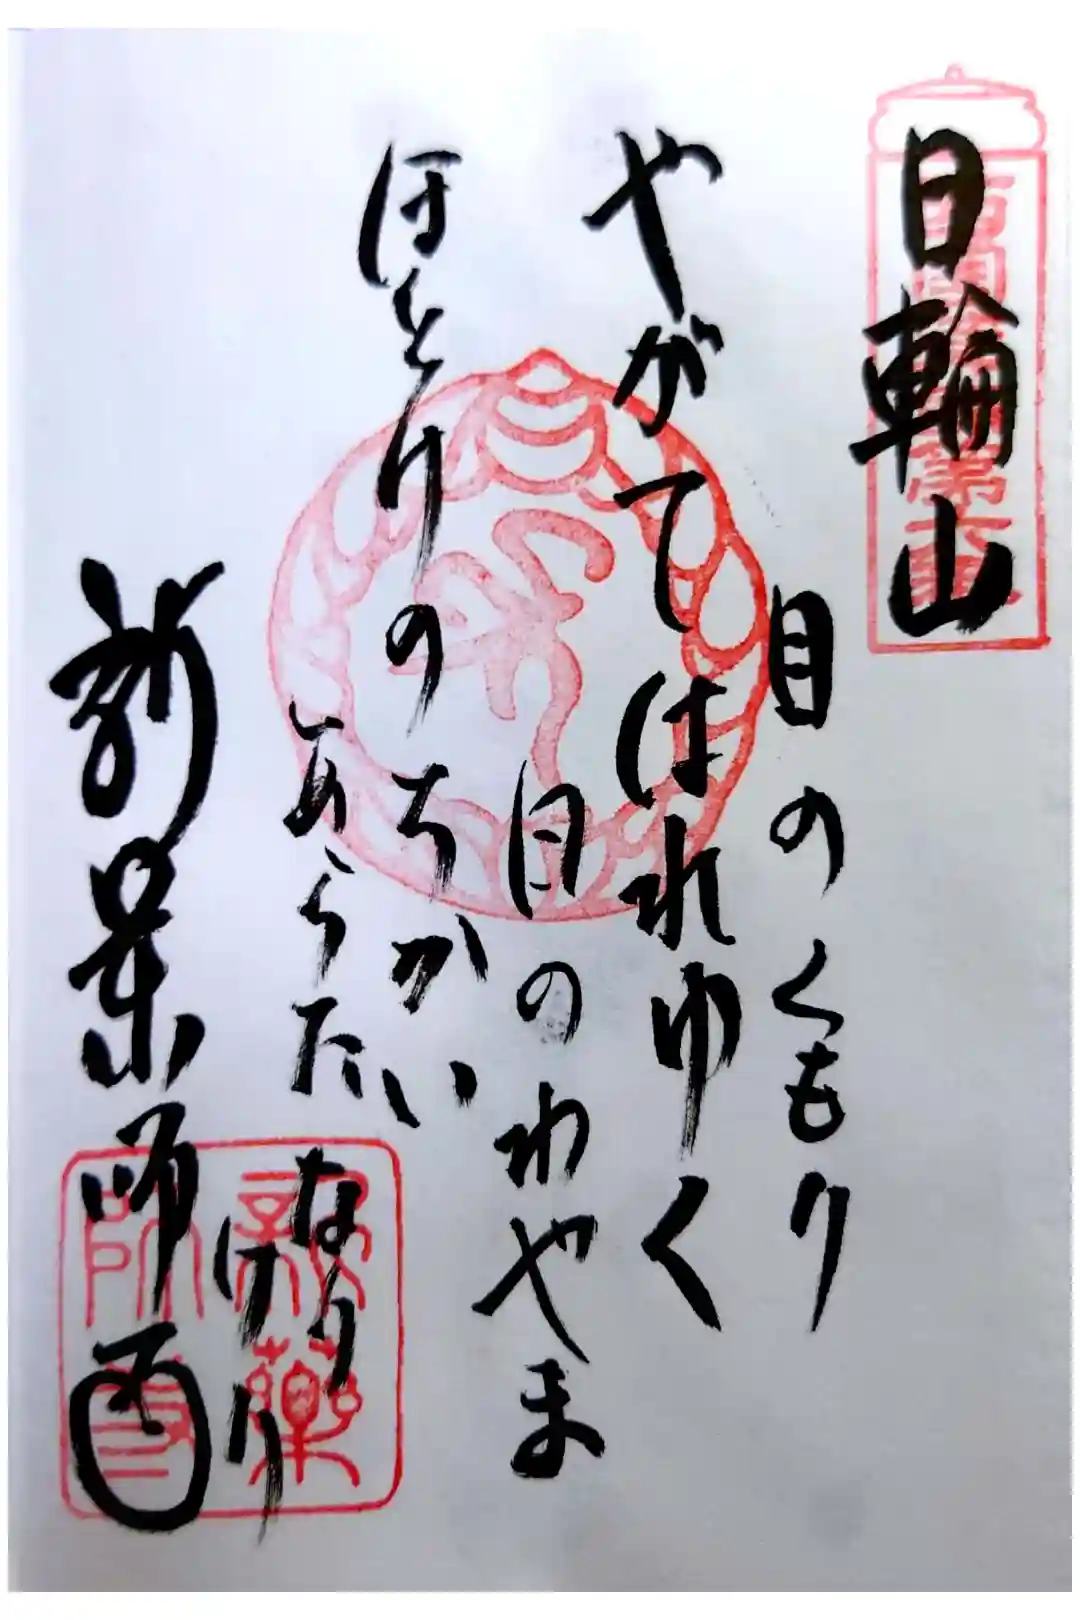 日輪山
目のくもり
やがてはれゆく
日のわやま
ほとけのちかい
あらたなり
けり
新薬師寺
新薬
師寺